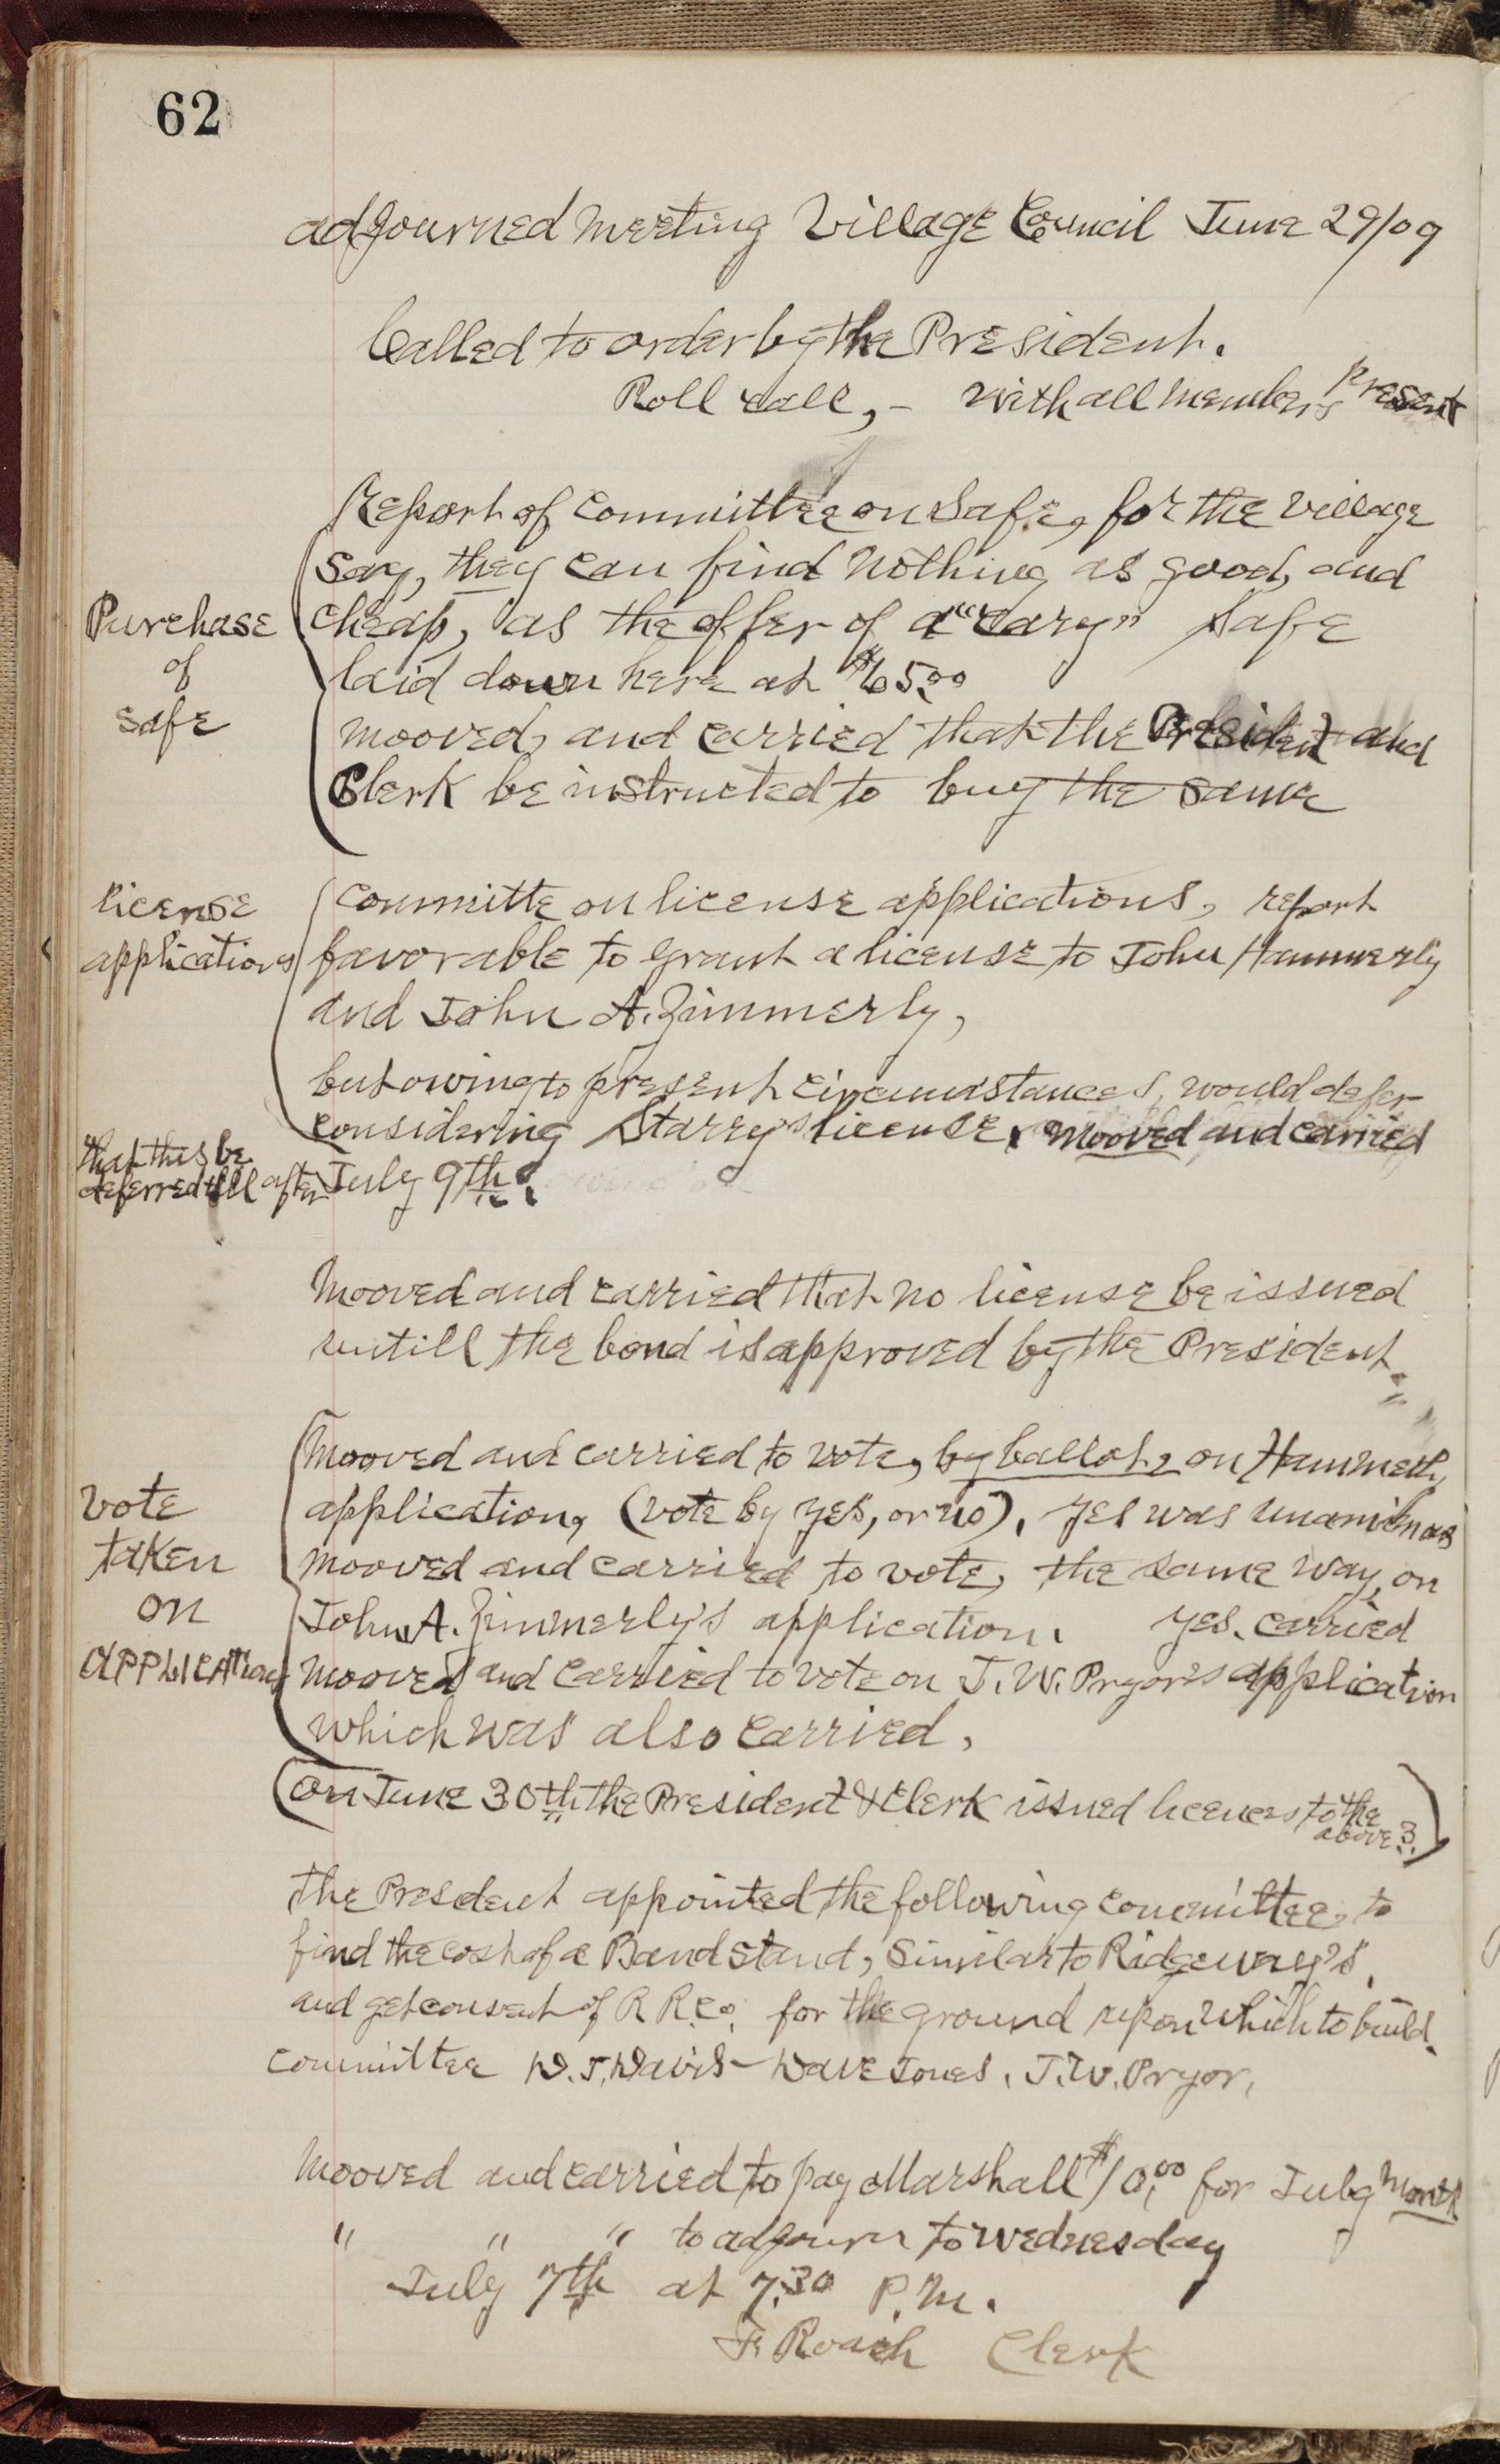 62
adjourned meeting Village Council June 29/09
Called to order by the President.
Roll call, - with all members present
Report of committee on Safe, for the village
say, they can find nothing as good, and
Purchase of safe
cheap, as the offer of a "Cary" Safe
laid down here at $65.00
mooved, and carried that the President and
Clerk be instructed to buy the same
license applications
committe on license applications, report
favorable to grant a license to John Hammerly
and John A. Zimmerly,
but owing to present circumstances, would defer
considering Starry's license, mooved and carried
that this be deferred till after July 9th.
Mooved and carried that no license be issued
untill the bond is approved by the President.
Vote taken on applications
Mooved and carried to vote, by ballot, on Hammerly
application, (vote by yes, or no), yes was unanimous
mooved and carried to vote, the same way, on
John A. Zimmerly's application. yes. carried
mooved and carried to vote on J. W. Pryor's application
which was also carried.
(on June 30th the President & Clerk issued licenses to the above 3.)
the President appointed the following committee, to
find the cost of a Band stand, similar to Ridgeway's,
and get consent of R R. Co. for the ground upon which to build.
committee D. J. Davis - Dave Jones. J. W. Pryor,
Mooved and carried to pay Marshall $10.00 for July month
" " " to adjourn to Wednesday
July 7th at 7.30 P.M.
F. Roach Clerk